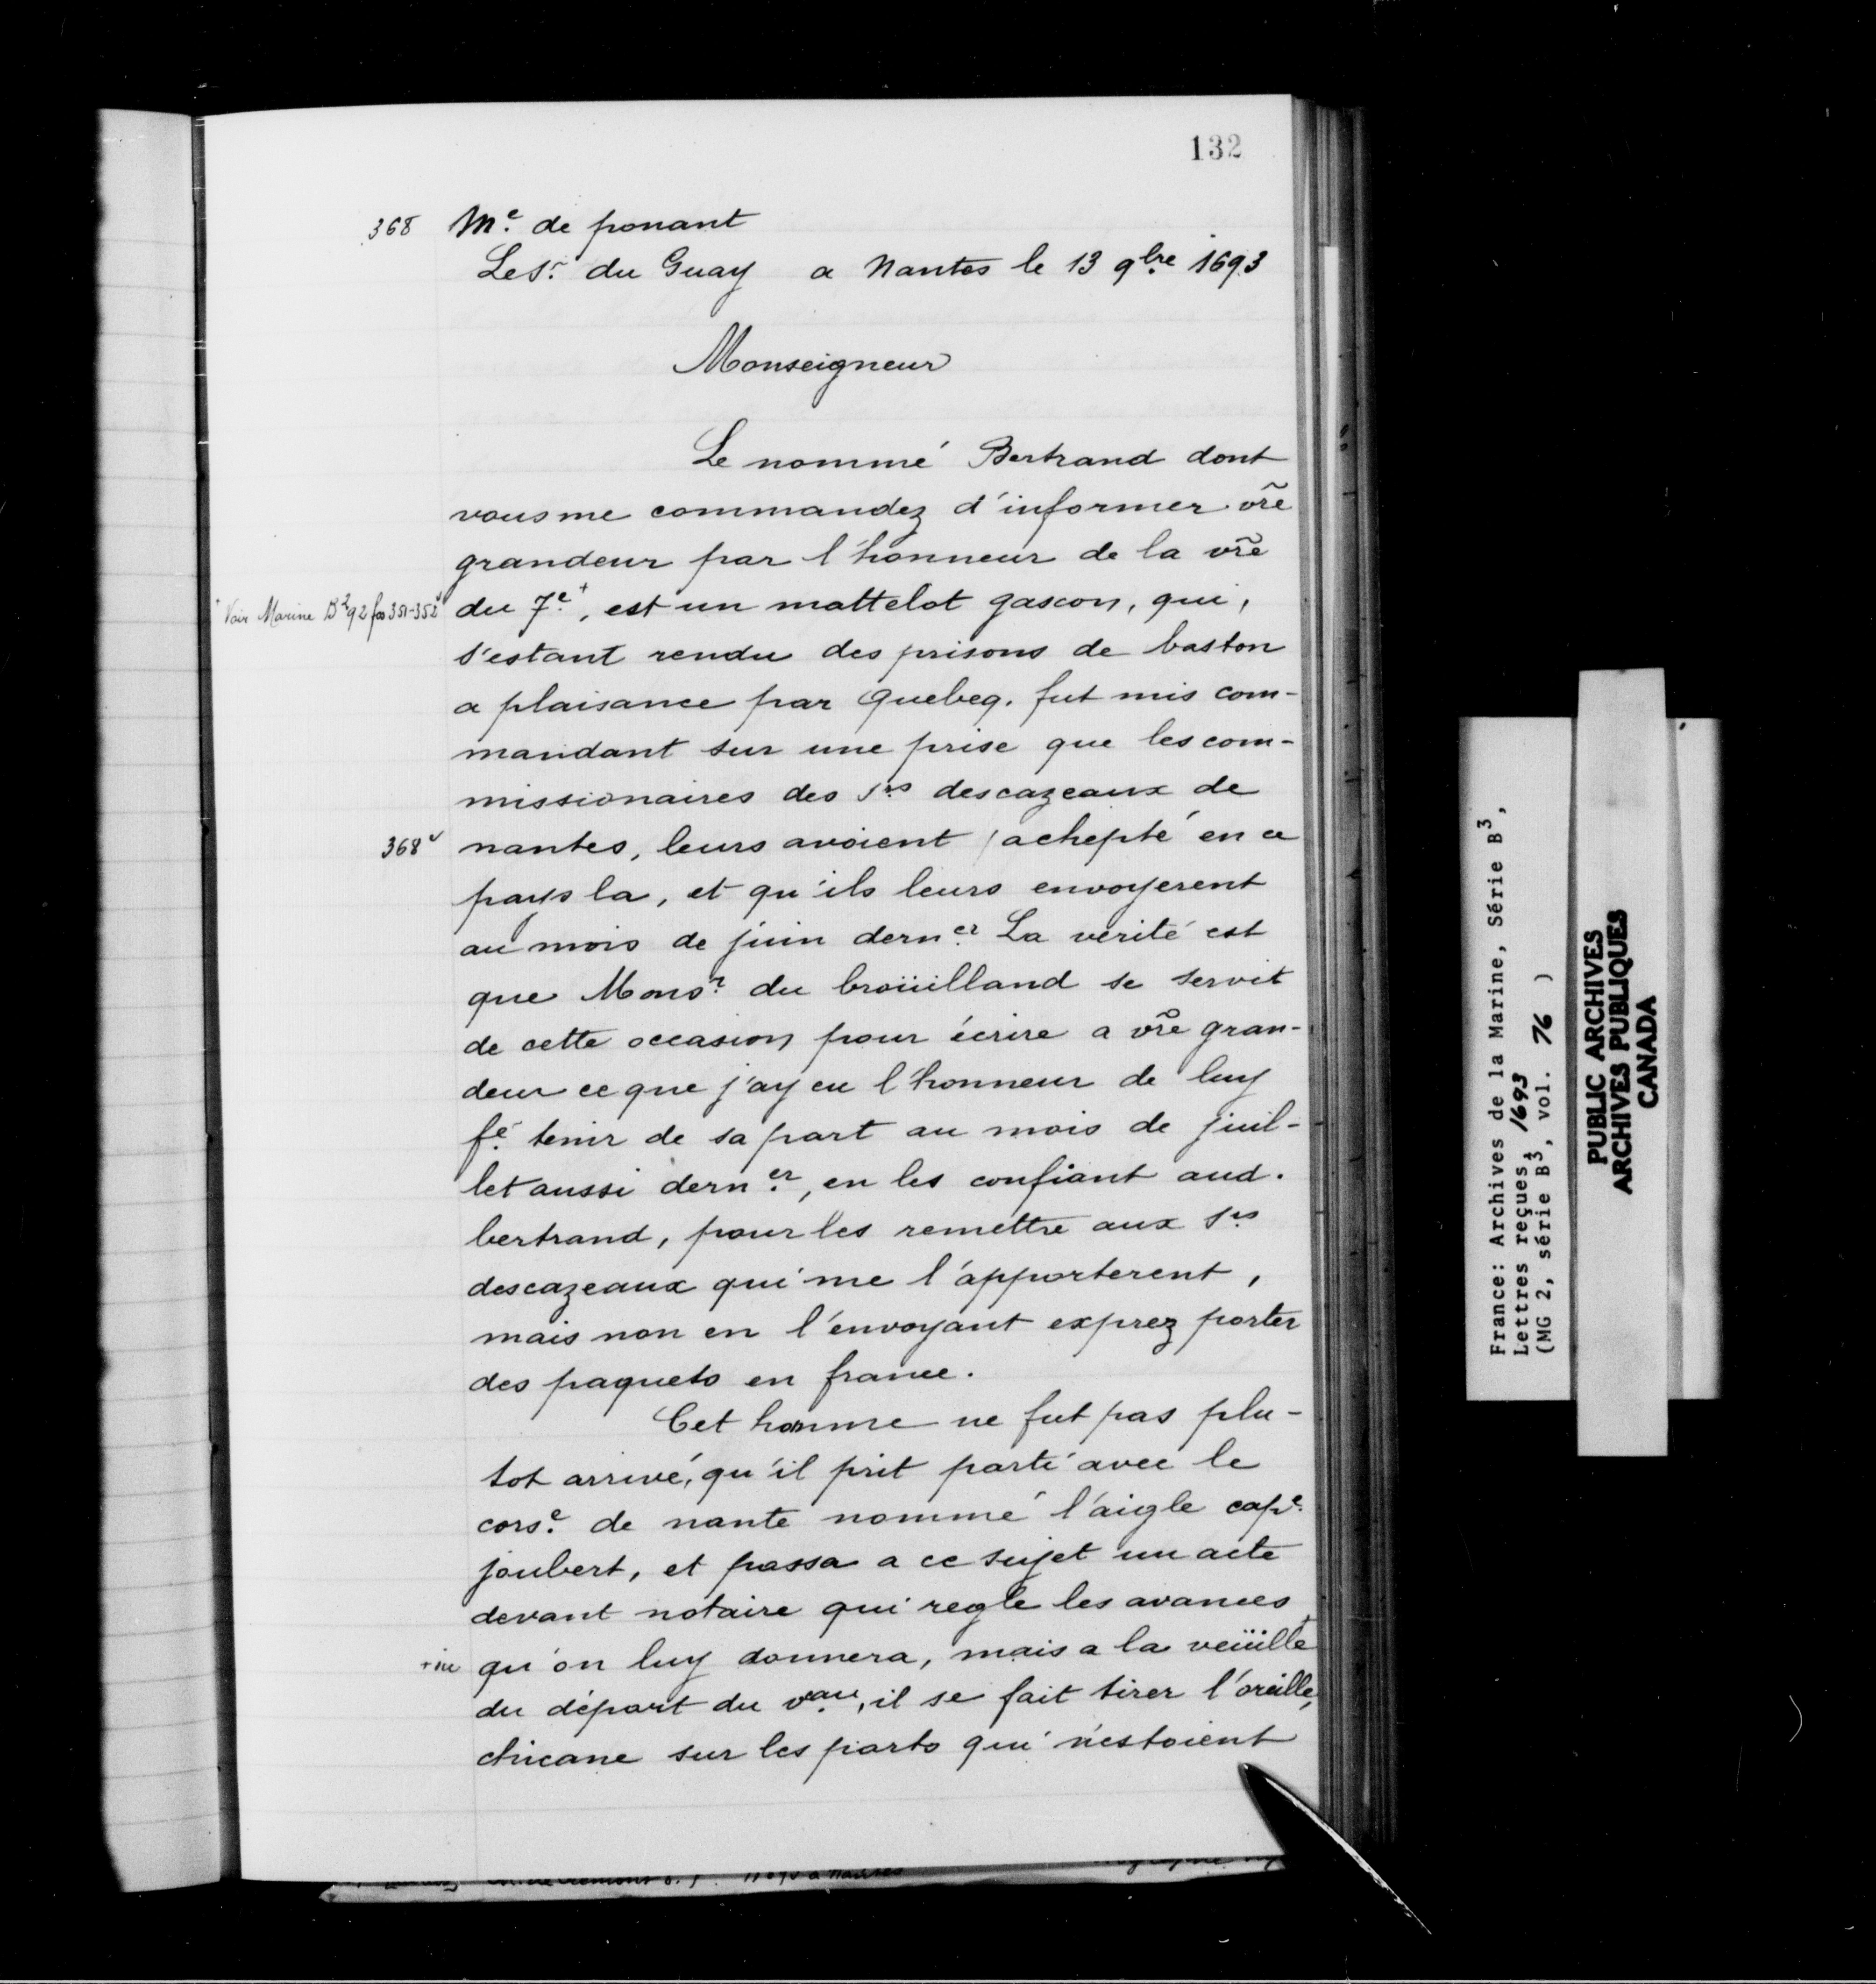 132
368 Me. de ponant
Le sr. du Guay a Nantes le 13 9bre 1693
Monseigneur
Le nommé Bertrand dont
vous me commandez d'informer vr̃e
grandeur par l'honneur de la vr̃e
+ Voir Marine B2 92 fos 351-352v du 7e.+, est un mattelot gascon, qui,
s'estant rendu des prisons de baston
a plaisance par Quebeq. fut mis com-
mandant sur une prise que les com-
missionaires des srs descazeaux de
368v nantes, leurs avoient / achepté en ce
pays la, et qu'ils leurs envoyerent
au mois de juin derner. La verité est
que Monsr. du broüilland se servit
de cette occasion pour écrire a vr̃e gran-
deur ce que j'ay eu l'honneur de luy
fe. tenir de sa part au mois de juil-
let aussi derner., en les confiant aud.
bertrand, pour les remettre aux srs
descazeaux qui me l'apporterent,
mais non en l'envoyant exprez porter
des paquets en france.
Cet homme ne fut pas plu-
tot arrivé, qu'il prit parti avec le
corse. de nante nommé l'aigle cape.
joubert, et passa a ce sujet un acte
devant notaire qui regle les avances
qu'on luy donnera, mais a la veüille+
du départ du vau., il se fait tirer l'oreille,
chicane sur les parts qui n'estoient
France: Archives de la Marine, Série B3,
Lettres reçues, 1693
(MG 2, série B3, vol. 76 )
PUBLIC ARCHIVES
ARCHIVES PUBLIQUES
CANADA